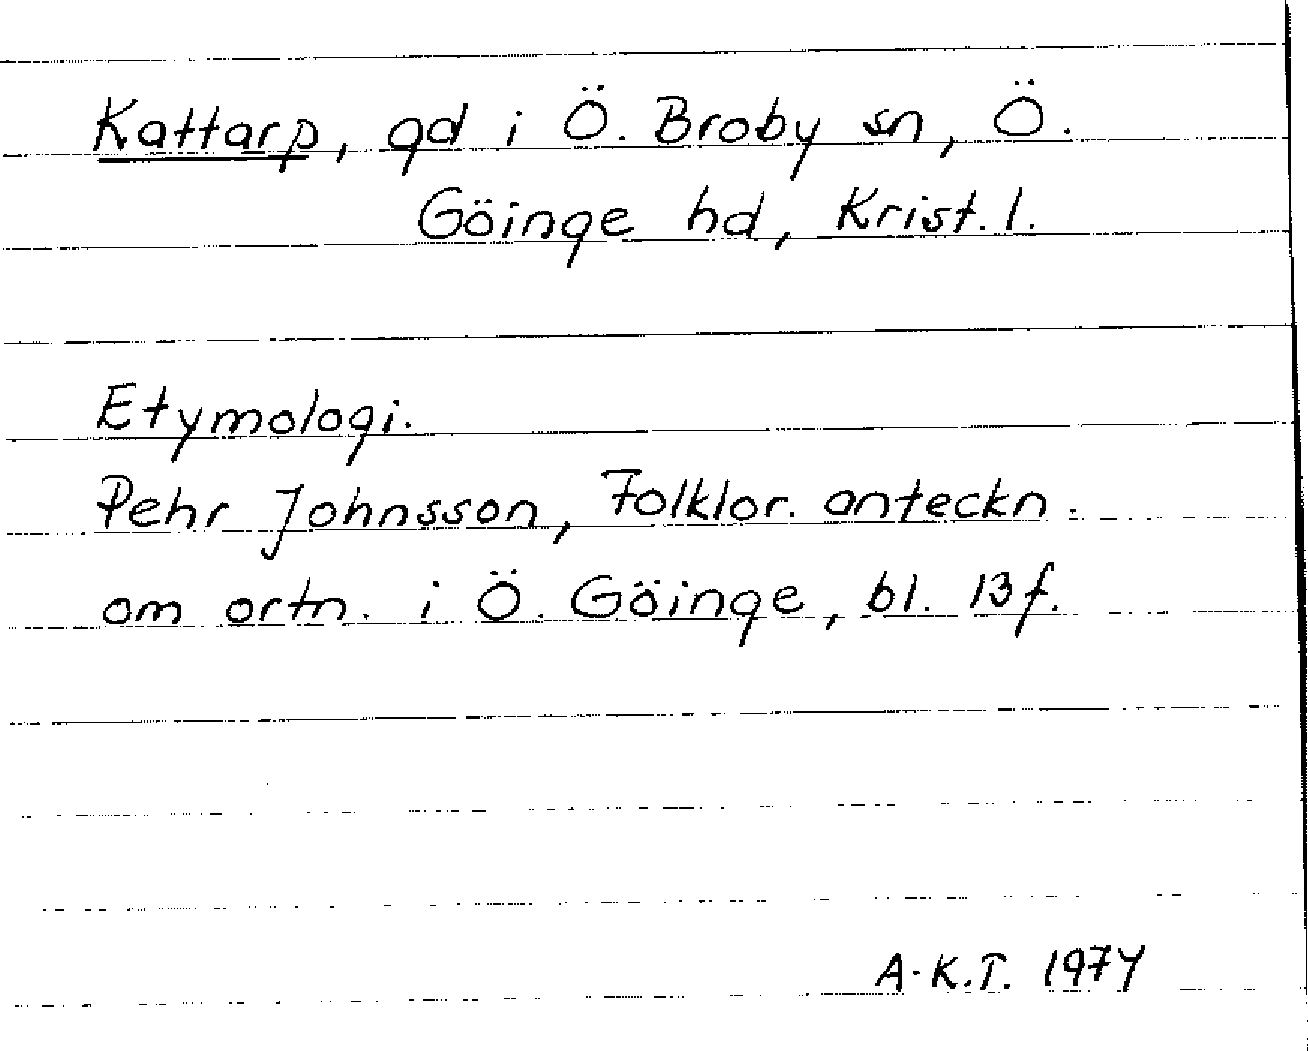 Kattarp, gd i Ö. Broby sn, Ö.
Göinge hd, Krist. l.
Etymologi.
Pehr Johnsson, Folklor. anteckn.
om ortn. i Ö. Göinge, bl. 13 f.
A-K.T. 1974